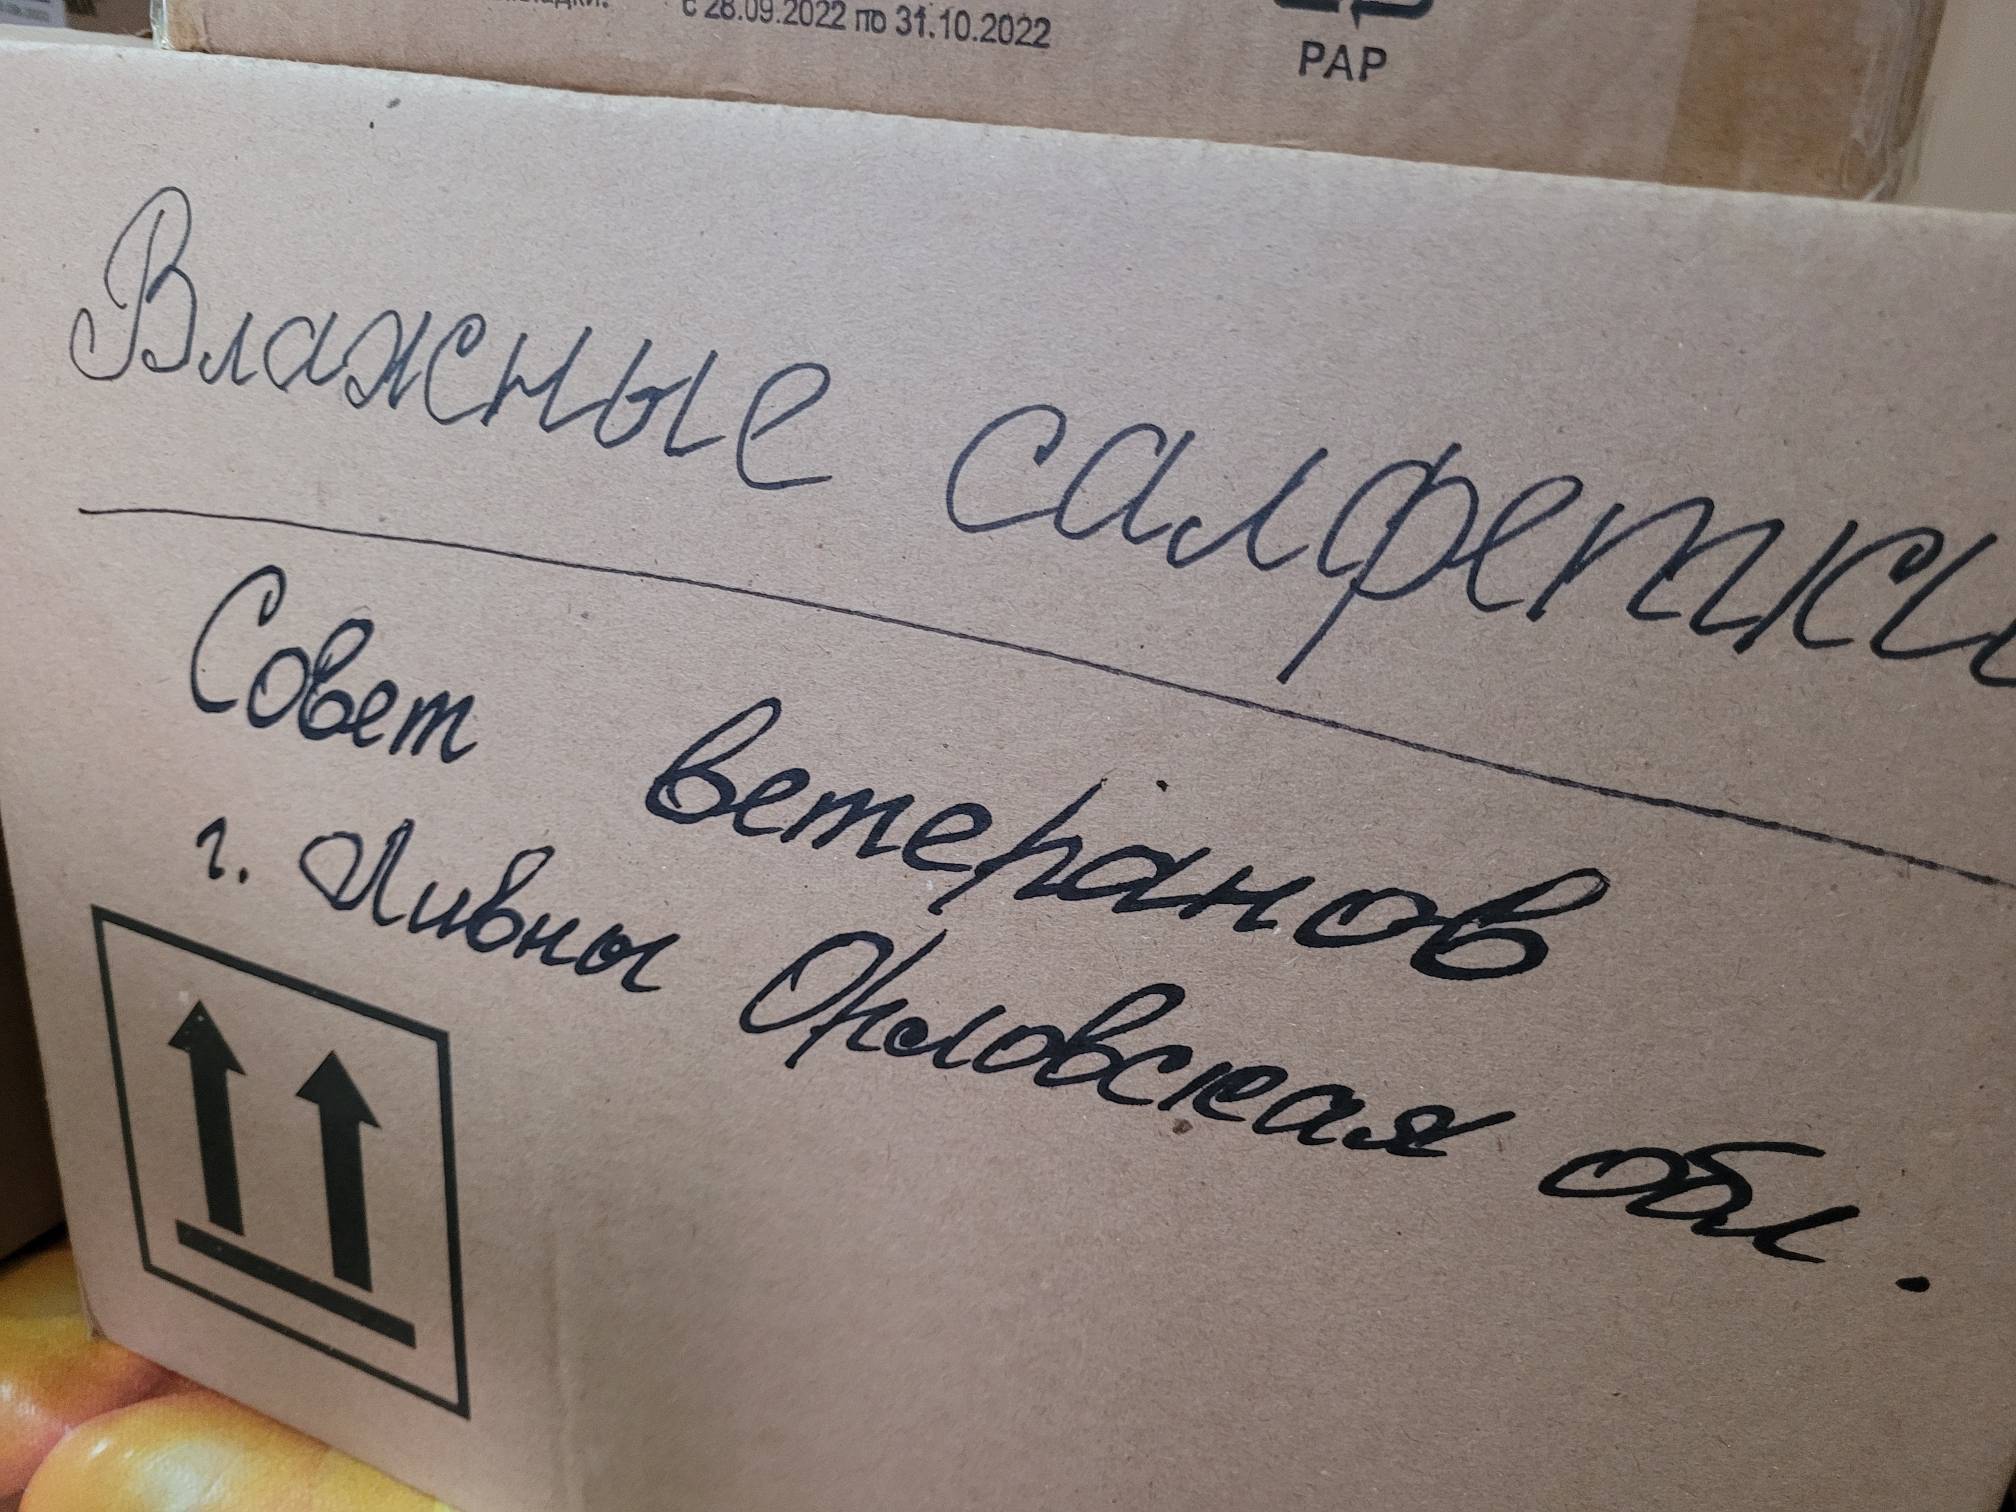 с 28.09.2022 по 31.10.2022
PAP
Влажные салфетки
Совет ветеранов
г. Ливны Орловская обл.